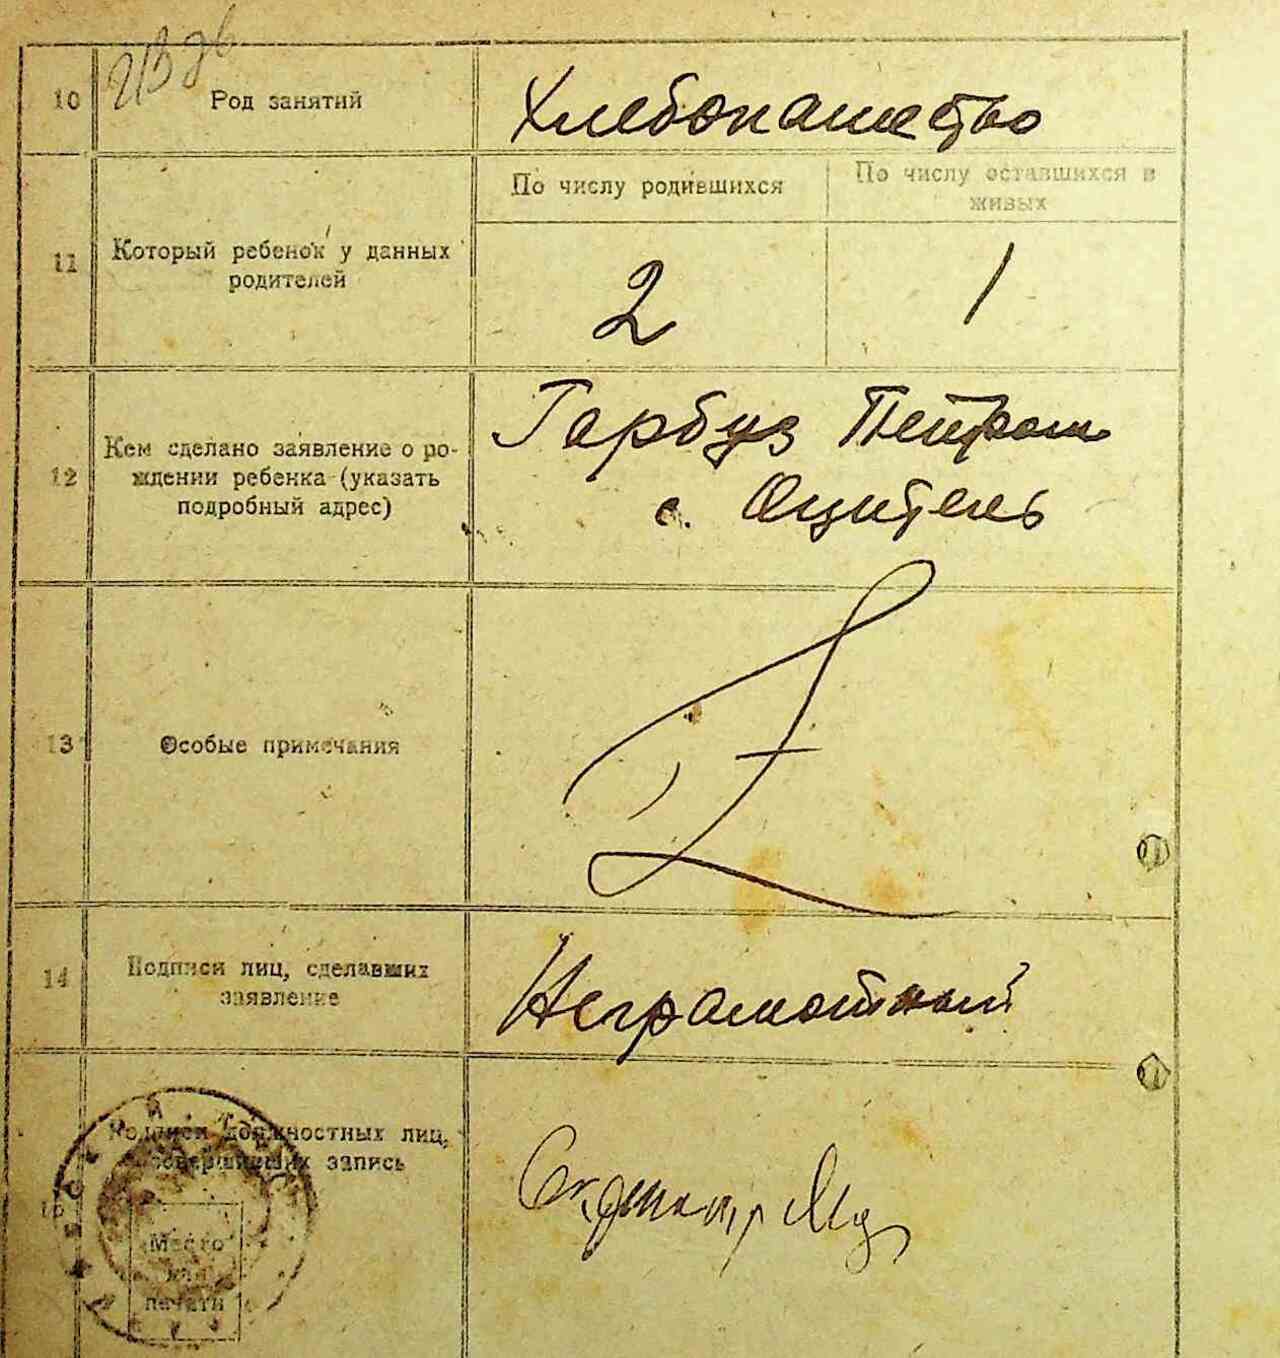 10
Род занятий
Хлебопашество
11
Который ребенок у данных
родителей
По числу родившихся
По числу оставшихся в
живых
2
1
12
Кем сделано заявление о ро-
ждении ребенка (указать
подробный адрес)
Гарбуз Петром
с. Оцитель
13
Особые примечания
14
Подписи лиц, сделавших
заявление
Неграмотный
Подписи должностных лиц,
совершивших запись
Место
для
печати